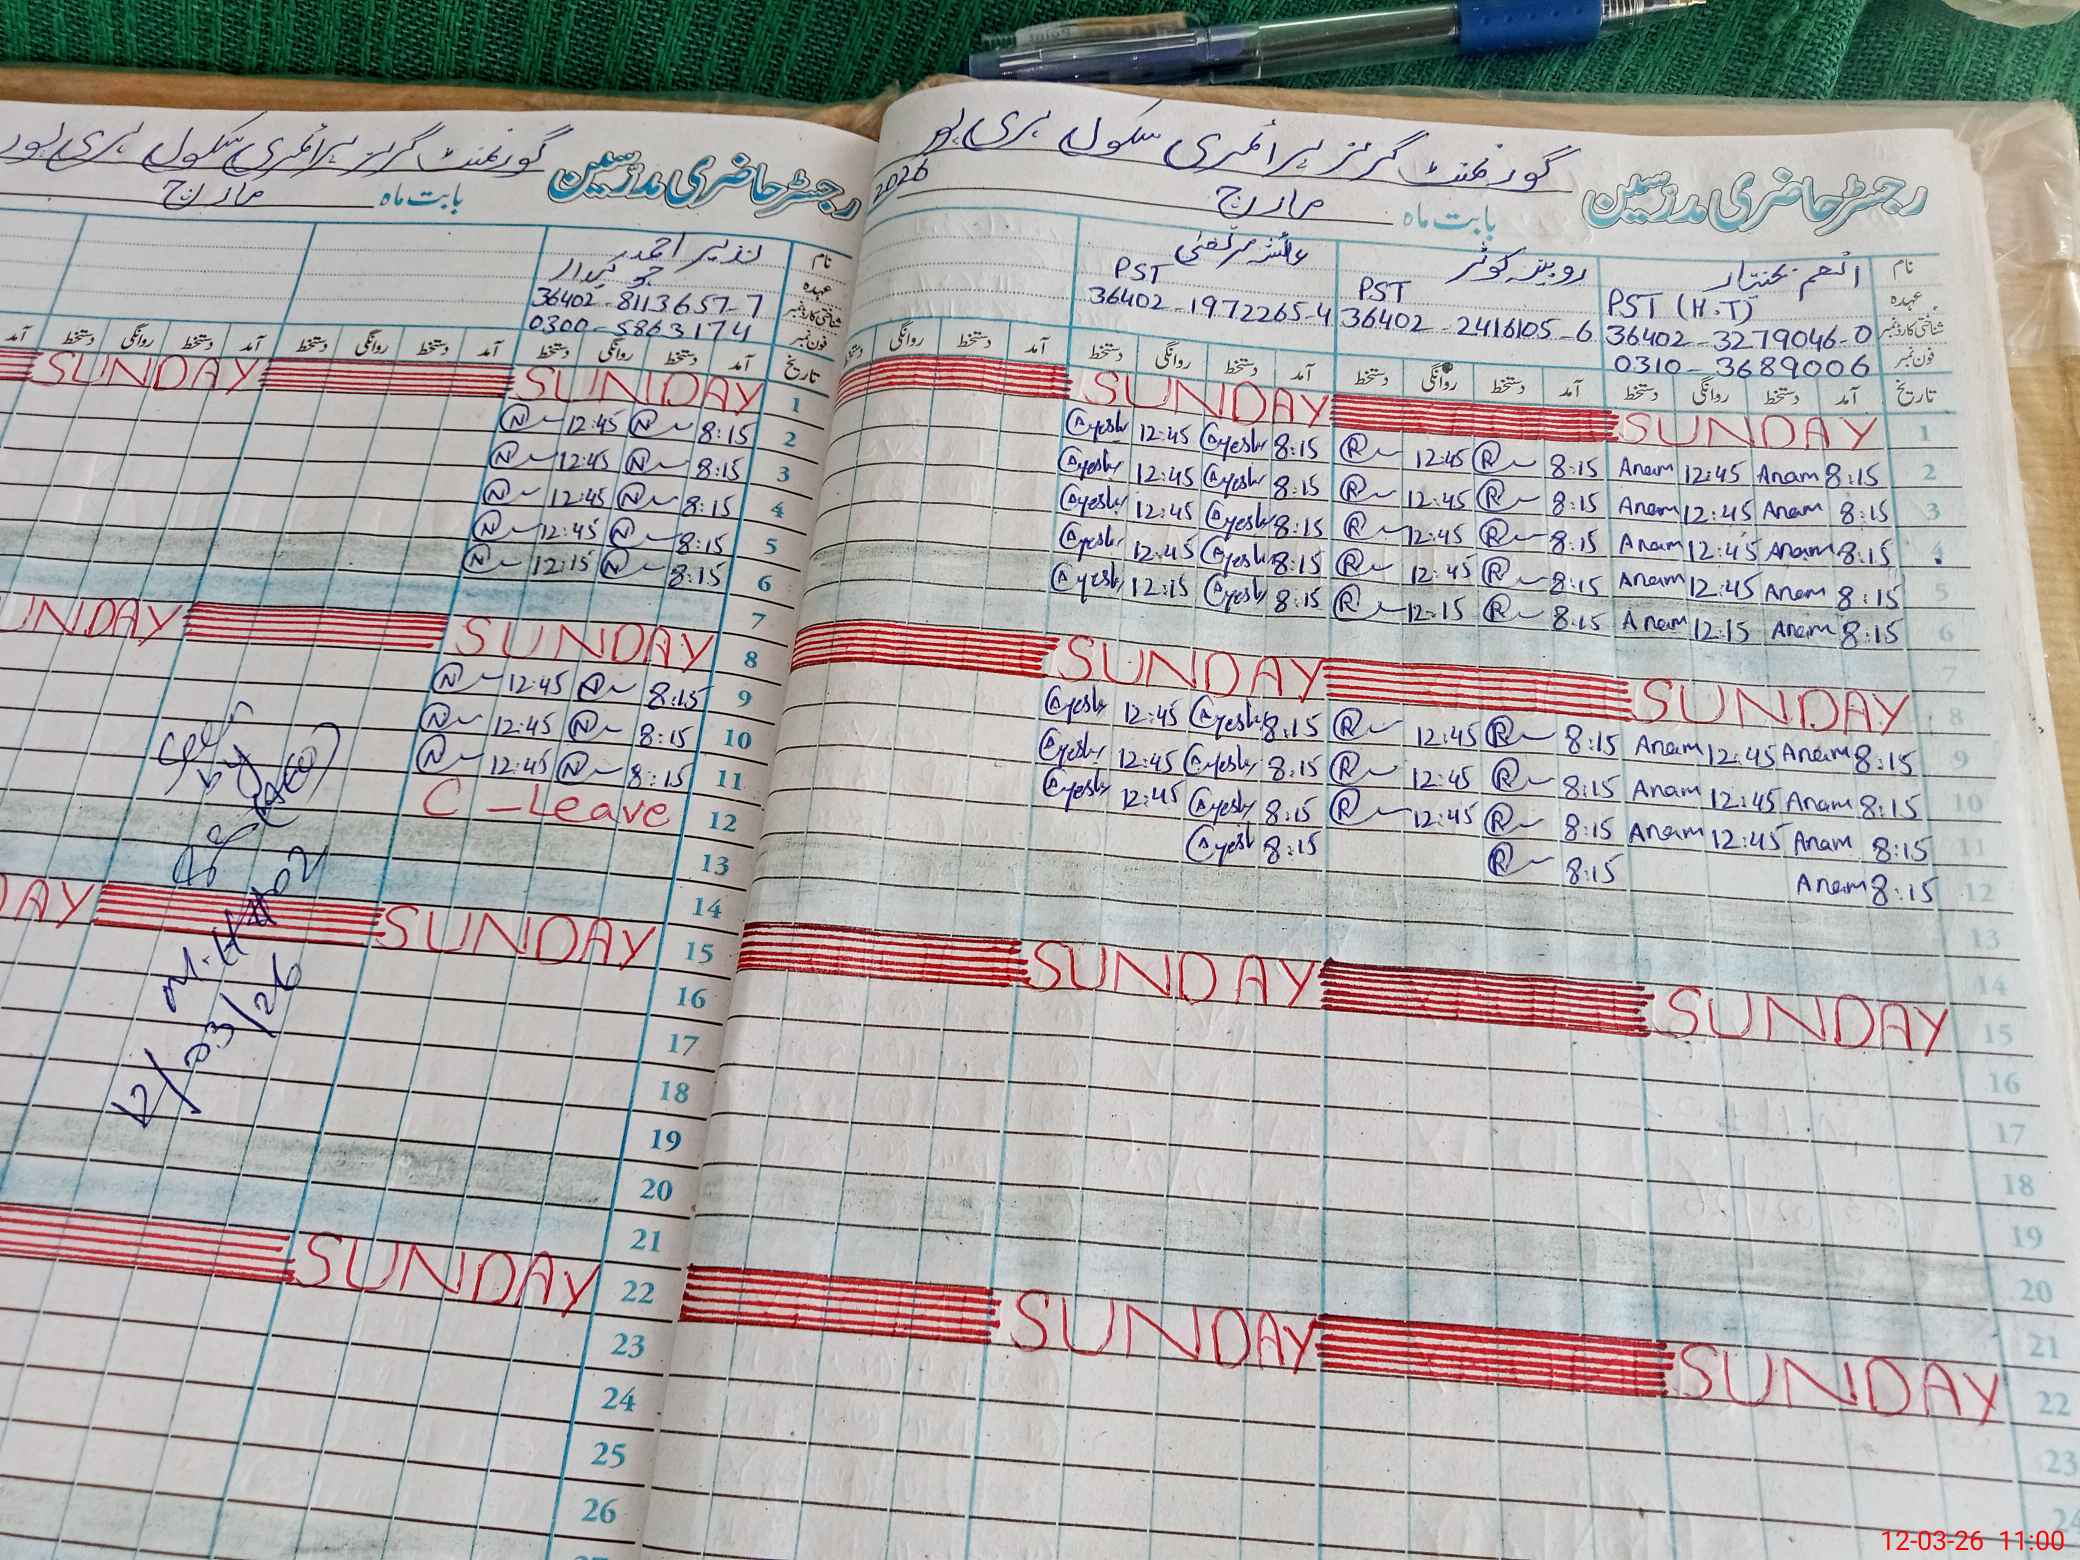 رجسٹر حاضری مدرسین گورنمنٹ گرلز پرائمری سکول ہری پور
بابت ماہ مارچ 2026
نام انعم بختیار روبینہ کوثر عائشہ مرتضیٰ
عہدہ PST (H.T) PST PST
شناختی کارڈ نمبر 36402-3279046-0 36402-2416105-6 36402-1972265-4
فون نمبر 0310-3689006
تاریخ آمد دستخط روانگی دستخط آمد دستخط روانگی دستخط آمد دستخط روانگی دستخط آمد دستخط روانگی دستخط
1 SUNDAY SUNDAY
2 8:15 Anam 12:45 Anam 8:15 R 12:45 R 8:15 Ayesha 12:45 Ayesha
3 8:15 Anam 12:45 Anam 8:15 R 12:45 R 8:15 Ayesha 12:45 Ayesha
4 8:15 Anam 12:45 Anam 8:15 R 12:45 R 8:15 Ayesha 12:45 Ayesha
5 8:15 Anam 12:45 Anam 8:15 R 12:45 R 8:15 Ayesha 12:45 Ayesha
6 8:15 Anam 12:15 Anam 8:15 R 12:15 R 8:15 Ayesha 12:15 Ayesha
7
8 SUNDAY SUNDAY
9 8:15 Anam 12:45 Anam 8:15 R 12:45 R 8:15 Ayesha 12:45 Ayesha
10 8:15 Anam 12:45 Anam 8:15 R 12:45 R 8:15 Ayesha 12:45 Ayesha
11 8:15 Anam 12:45 Anam 8:15 R 12:45 R 8:15 Ayesha 12:45 Ayesha
12 8:15 Anam 8:15 R 8:15 Ayesha
13
14
15 SUNDAY SUNDAY
16
17
18
19
20
21
22 SUNDAY SUNDAY
23
24
رجسٹر حاضری مدرسین گورنمنٹ گرلز پرائمری سکول ہری پور
بابت ماہ مارچ
نام نذیر احمد
عہدہ چوکیدار
شناختی کارڈ نمبر 36402-8113657-7
فون نمبر 0300-5863174
تاریخ آمد دستخط روانگی دستخط آمد دستخط روانگی دستخط آمد دستخط روانگی دستخط آمد
1 SUNDAY SUNDAY
2 8:15 N 12:45 N
3 8:15 N 12:45 N
4 8:15 N 12:45 N
5 8:15 N 12:45 N
6 8:15 N 12:15 N
7
8 SUNDAY UNDAY
9 8:15 N 12:45 N
10 8:15 N 12:45 N
11 8:15 N 12:45 N
12 C-Leave
13
14
15 SUNDAY DAY
16
17
18
19
20
21
22 SUNDAY
23
24
25
26
Seen
by
12/03/26
12-03-26 11:00